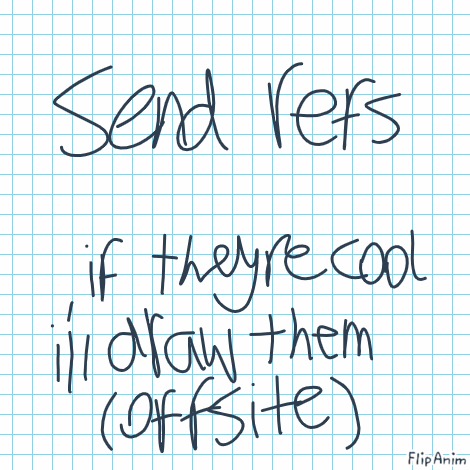 Send refs
if theyre cool
i'll draw them
(offsite)
FlipAnim